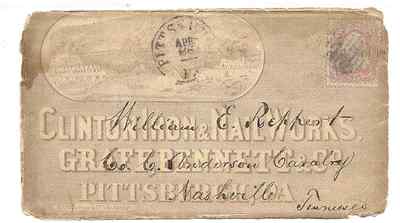 PITTSB
APR
CLINTON IRON & NAIL WORKS,
William E. Reppert
GRAFF, BENNETT & CO.
Co. C. Anderson Cavalry
PITTSBURGH, PA
Nashville
Tennessee